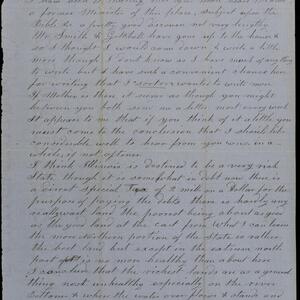 a former Minister of this place, subject upon the
Bible & a pretty good discourse not very lengthy
Mr Smith & Gutthutt have gone up to the house &
so I thought I would come down & write a little
more though I don't know as I have much of anything
to write but I have such a convenient chance here
for writing that I sorter wanter to write more
If Mother is there it seems as though you might
between you both send me a letter most every week
It appears to me that if you think of it a little you
must come to the conclusion that I should like
considerable well to hear from you once in a
while, if not oftener
I think Illinois is destined to be a very rich
State, though it is somewhat in debt now there is
a direct special Tax of 2 mill on a Dollar for the
purpose of paying the debts there is hardly any
really waste land the poorest being about as good
as the good land at the east from what I can learn
the more southern portion of the State is rather
the best land but except the extreem north
part is no more healthy than about here
I conclude that the richest lands are as a general
thing most unhealthy especially on the river
Bottoms & where the water overflows & stands and